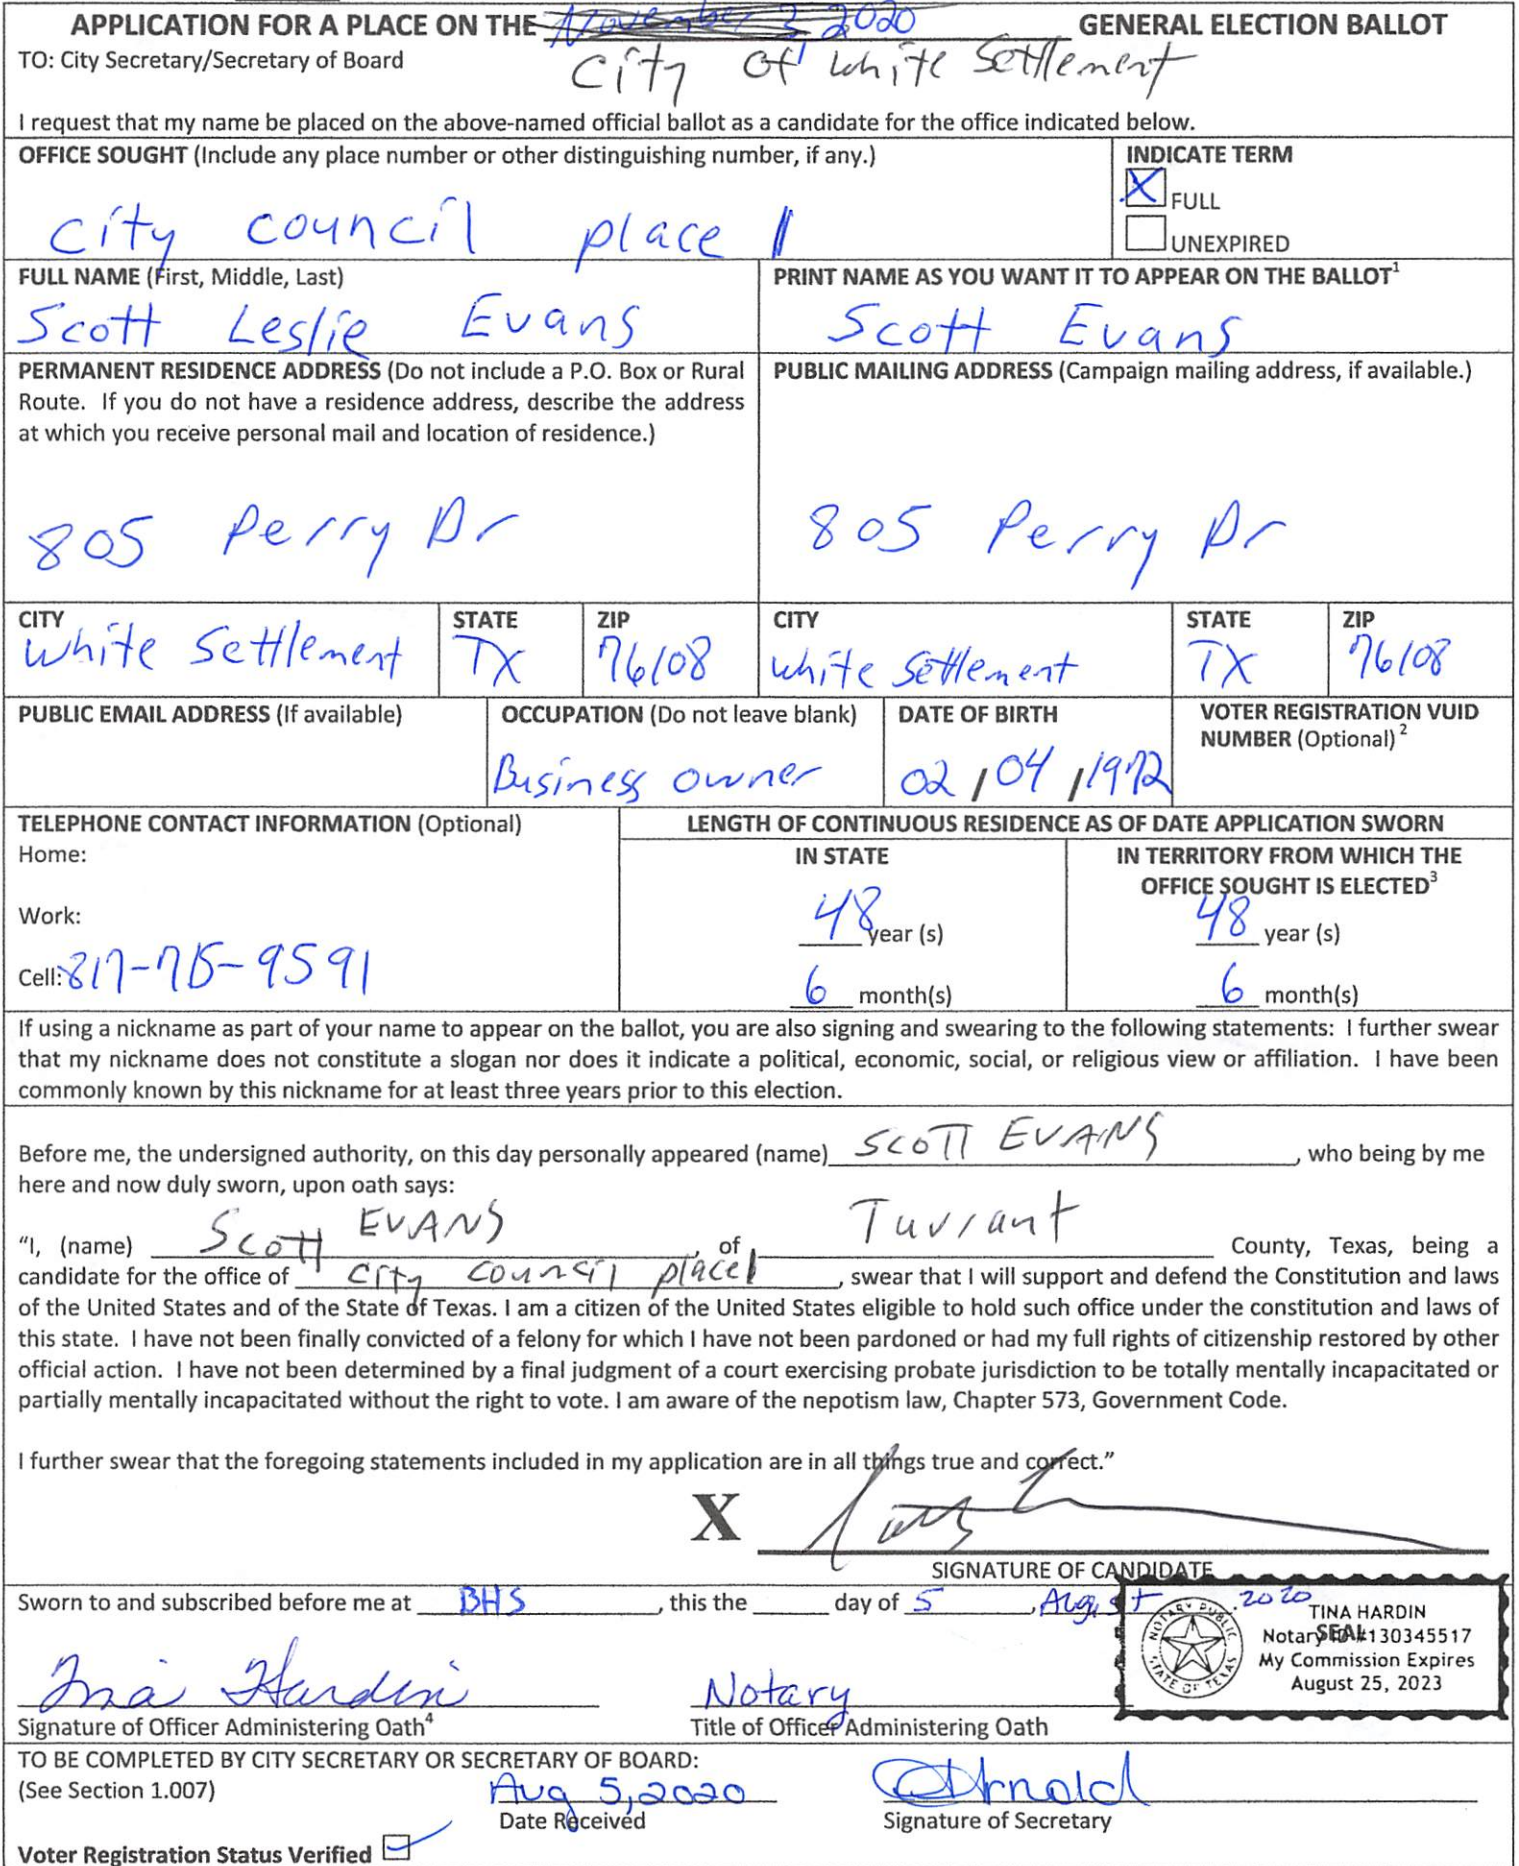 APPLICATION FOR A PLACE ON THE November 3, 2020 GENERAL ELECTION BALLOT
TO: City Secretary/Secretary of Board
City of White Settlement
I request that my name be placed on the above-named official ballot as a candidate for the office indicated below.
OFFICE SOUGHT (Include any place number or other distinguishing number, if any.)
city council place 1
INDICATE TERM
X FULL
UNEXPIRED
FULL NAME (First, Middle, Last)
Scott Leslie Evans
PRINT NAME AS YOU WANT IT TO APPEAR ON THE BALLOT¹
Scott Evans
PERMANENT RESIDENCE ADDRESS (Do not include a P.O. Box or Rural
Route. If you do not have a residence address, describe the address
at which you receive personal mail and location of residence.)
805 Perry Dr
PUBLIC MAILING ADDRESS (Campaign mailing address, if available.)
805 Perry Dr
CITY STATE ZIP CITY STATE ZIP
White Settlement TX 76108 White Settlement TX 76108
PUBLIC EMAIL ADDRESS (If available)
OCCUPATION (Do not leave blank)
Business owner
DATE OF BIRTH
02/04/1972
VOTER REGISTRATION VUID
NUMBER (Optional) ²
TELEPHONE CONTACT INFORMATION (Optional)
Home:
Work:
Cell: 817-715-9591
LENGTH OF CONTINUOUS RESIDENCE AS OF DATE APPLICATION SWORN
IN STATE
48 year (s)
6 month(s)
IN TERRITORY FROM WHICH THE
OFFICE SOUGHT IS ELECTED³
48 year (s)
6 month(s)
If using a nickname as part of your name to appear on the ballot, you are also signing and swearing to the following statements: I further swear
that my nickname does not constitute a slogan nor does it indicate a political, economic, social, or religious view or affiliation. I have been
commonly known by this nickname for at least three years prior to this election.
Before me, the undersigned authority, on this day personally appeared (name) SCOTT EVANS, who being by me
here and now duly sworn, upon oath says:
"I, (name) Scott EVANS, of Tarrant County, Texas, being a
candidate for the office of City council place 1, swear that I will support and defend the Constitution and laws
of the United States and of the State of Texas. I am a citizen of the United States eligible to hold such office under the constitution and laws of
this state. I have not been finally convicted of a felony for which I have not been pardoned or had my full rights of citizenship restored by other
official action. I have not been determined by a final judgment of a court exercising probate jurisdiction to be totally mentally incapacitated or
partially mentally incapacitated without the right to vote. I am aware of the nepotism law, Chapter 573, Government Code.
I further swear that the foregoing statements included in my application are in all things true and correct."
X
SIGNATURE OF CANDIDATE
Sworn to and subscribed before me at BHS, this the day of 5, August, 2020
TINA HARDIN
Notary ID #130345517
SEAL
My Commission Expires
August 25, 2023
NOTARY PUBLIC
STATE OF TEXAS
Tina Hardin
Signature of Officer Administering Oath⁴
Notary
Title of Officer Administering Oath
TO BE COMPLETED BY CITY SECRETARY OR SECRETARY OF BOARD:
(See Section 1.007)
Aug 5, 2020
Date Received
Arnold
Signature of Secretary
Voter Registration Status Verified